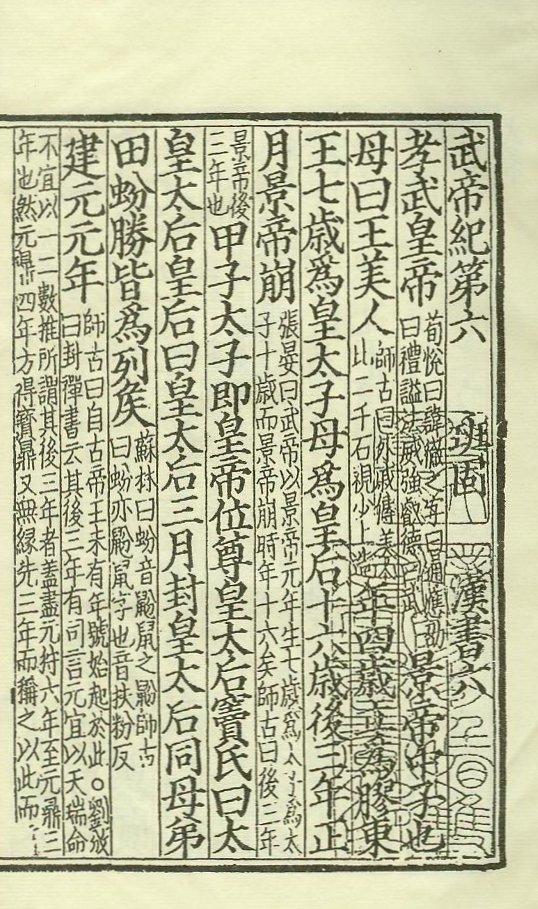 武帝紀第六 班固 漢書六
孝武皇帝 荀悅曰諱徹之字曰通應劭 曰禮謚法威強叡德曰武 景帝中子也
母曰王美人 師古曰外戚傳美人 比二千石視少上造 年四歲立爲膠東
王七歲爲皇太子母爲皇后十六歲後三年正
月景帝崩 張晏曰武帝以景帝元年生七歲爲太子爲太 子十歲而景帝崩時年十六矣師古曰後三年
景帝後 三年也 甲子太子即皇帝位尊皇太后竇氏曰太
皇太后皇后曰皇太后三月封皇太后同母弟
田蚡勝皆爲列矦 蘇林曰蚡音鼢鼠之鼢師古 曰蚡亦鼢鼠字也音扶粉反
建元元年 師古曰自古帝王未有年號始起於此○劉攽 曰封禪書云其後三年有司言元宜以天瑞命
不宜以一二數推所謂其後三年者蓋盡元狩六年至元鼎三 年也然元鼎四年方得寶鼎又無緣先三年而稱之以此而